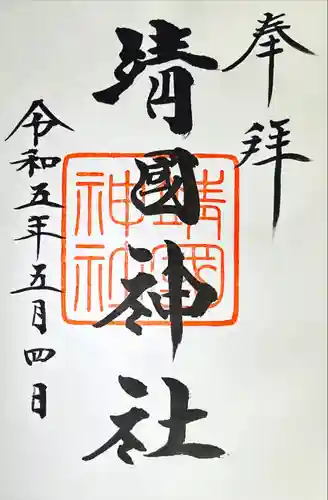 奉拝
靖國神社
靖國
神社
令和五年五月四日